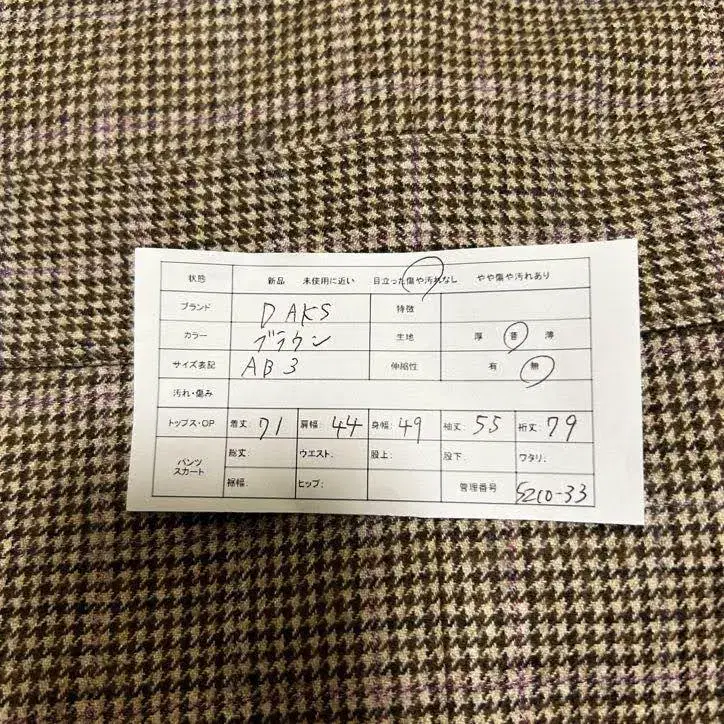 状態 新品 未使用に近い 目立った傷や汚れなし やや傷や汚れあり
ブランド DAKS 特徴
カラー ブラウン 生地 厚 普 薄
サイズ表記 AB3 伸縮性 有 無
汚れ・傷み
トップス・OP 着丈: 71 肩幅: 44 身幅: 49 袖丈: 55 裄丈: 79
パンツ スカート 総丈: ウエスト: 股上: 股下: ワタリ:
裾幅: ヒップ: 管理番号 5210-33